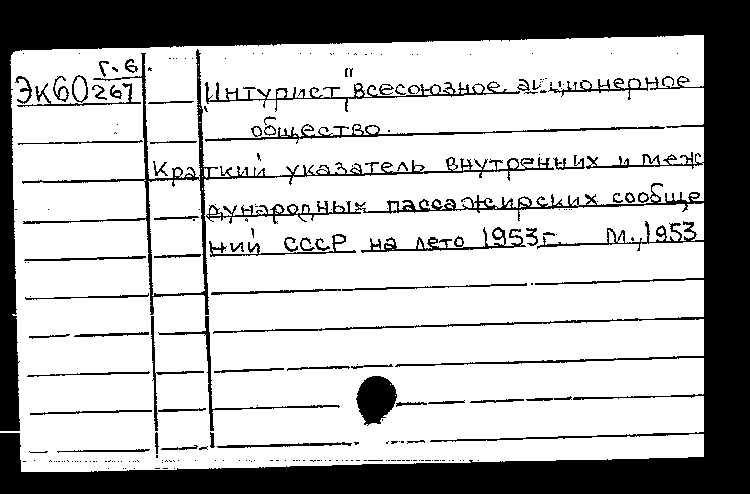 Г.б.
Эк60 267
Интурист", всесоюзное акционерное
общество.
Краткий указатель внутренних и меж
дународных пассажирских сообще
ний СССР на лето 1953г. М., 1953